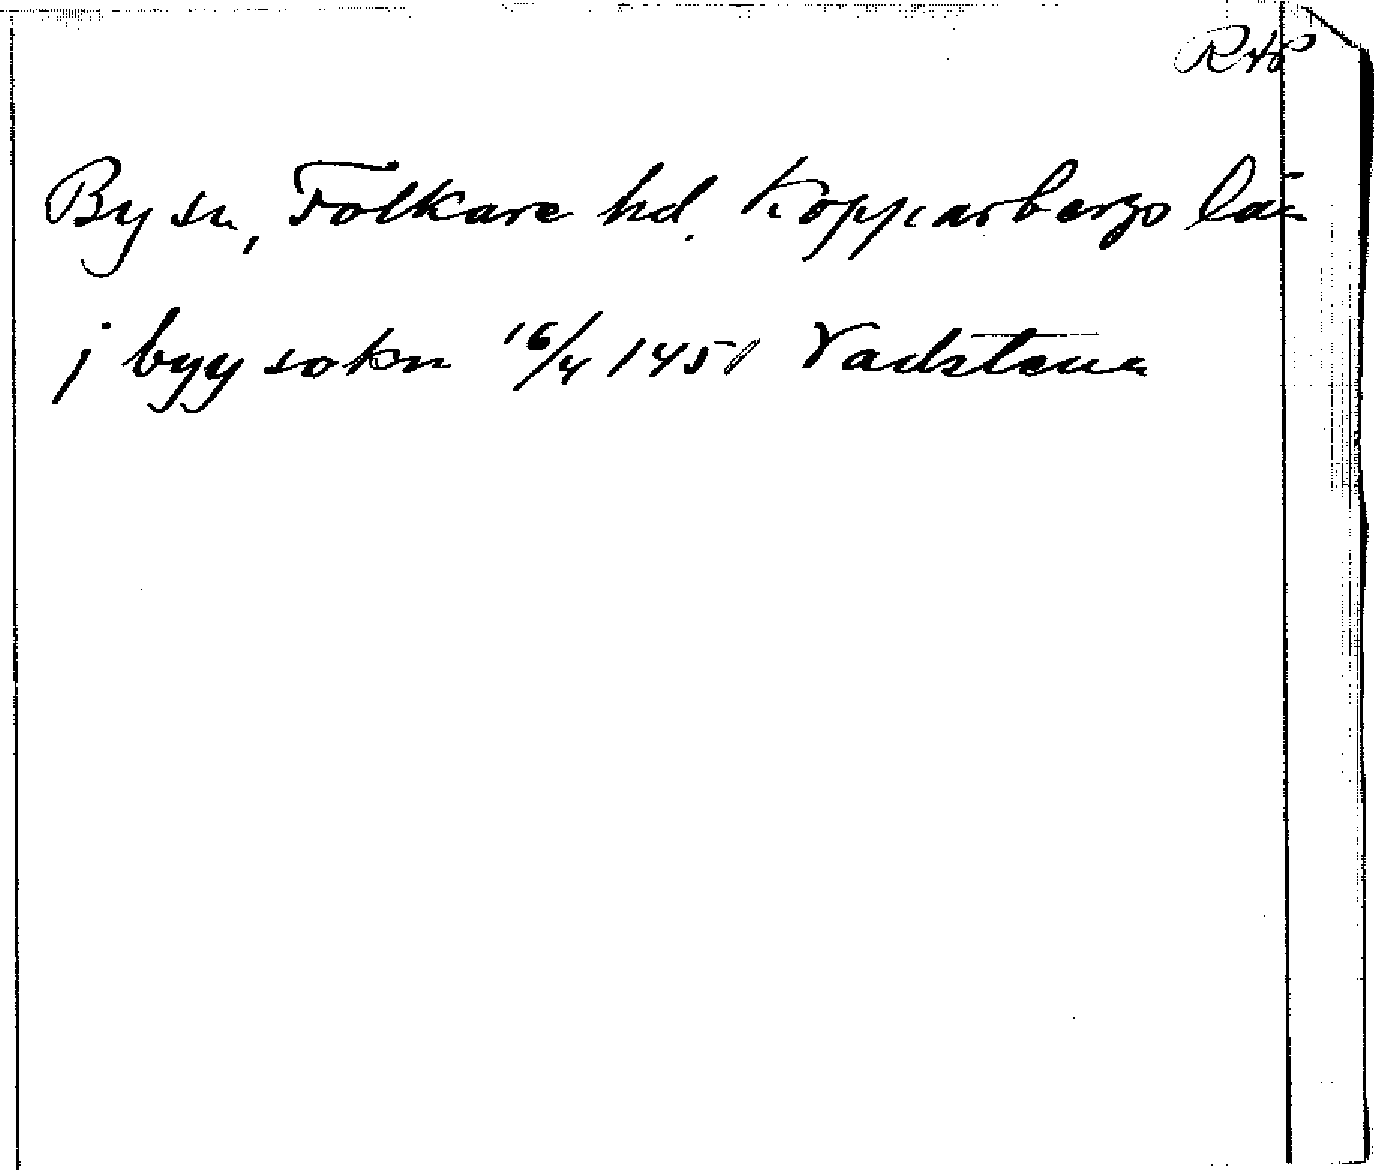 RAP
By sn, Folkare hd. Kopparbergs län
j byy sokn 16/4 1451 Vadstena